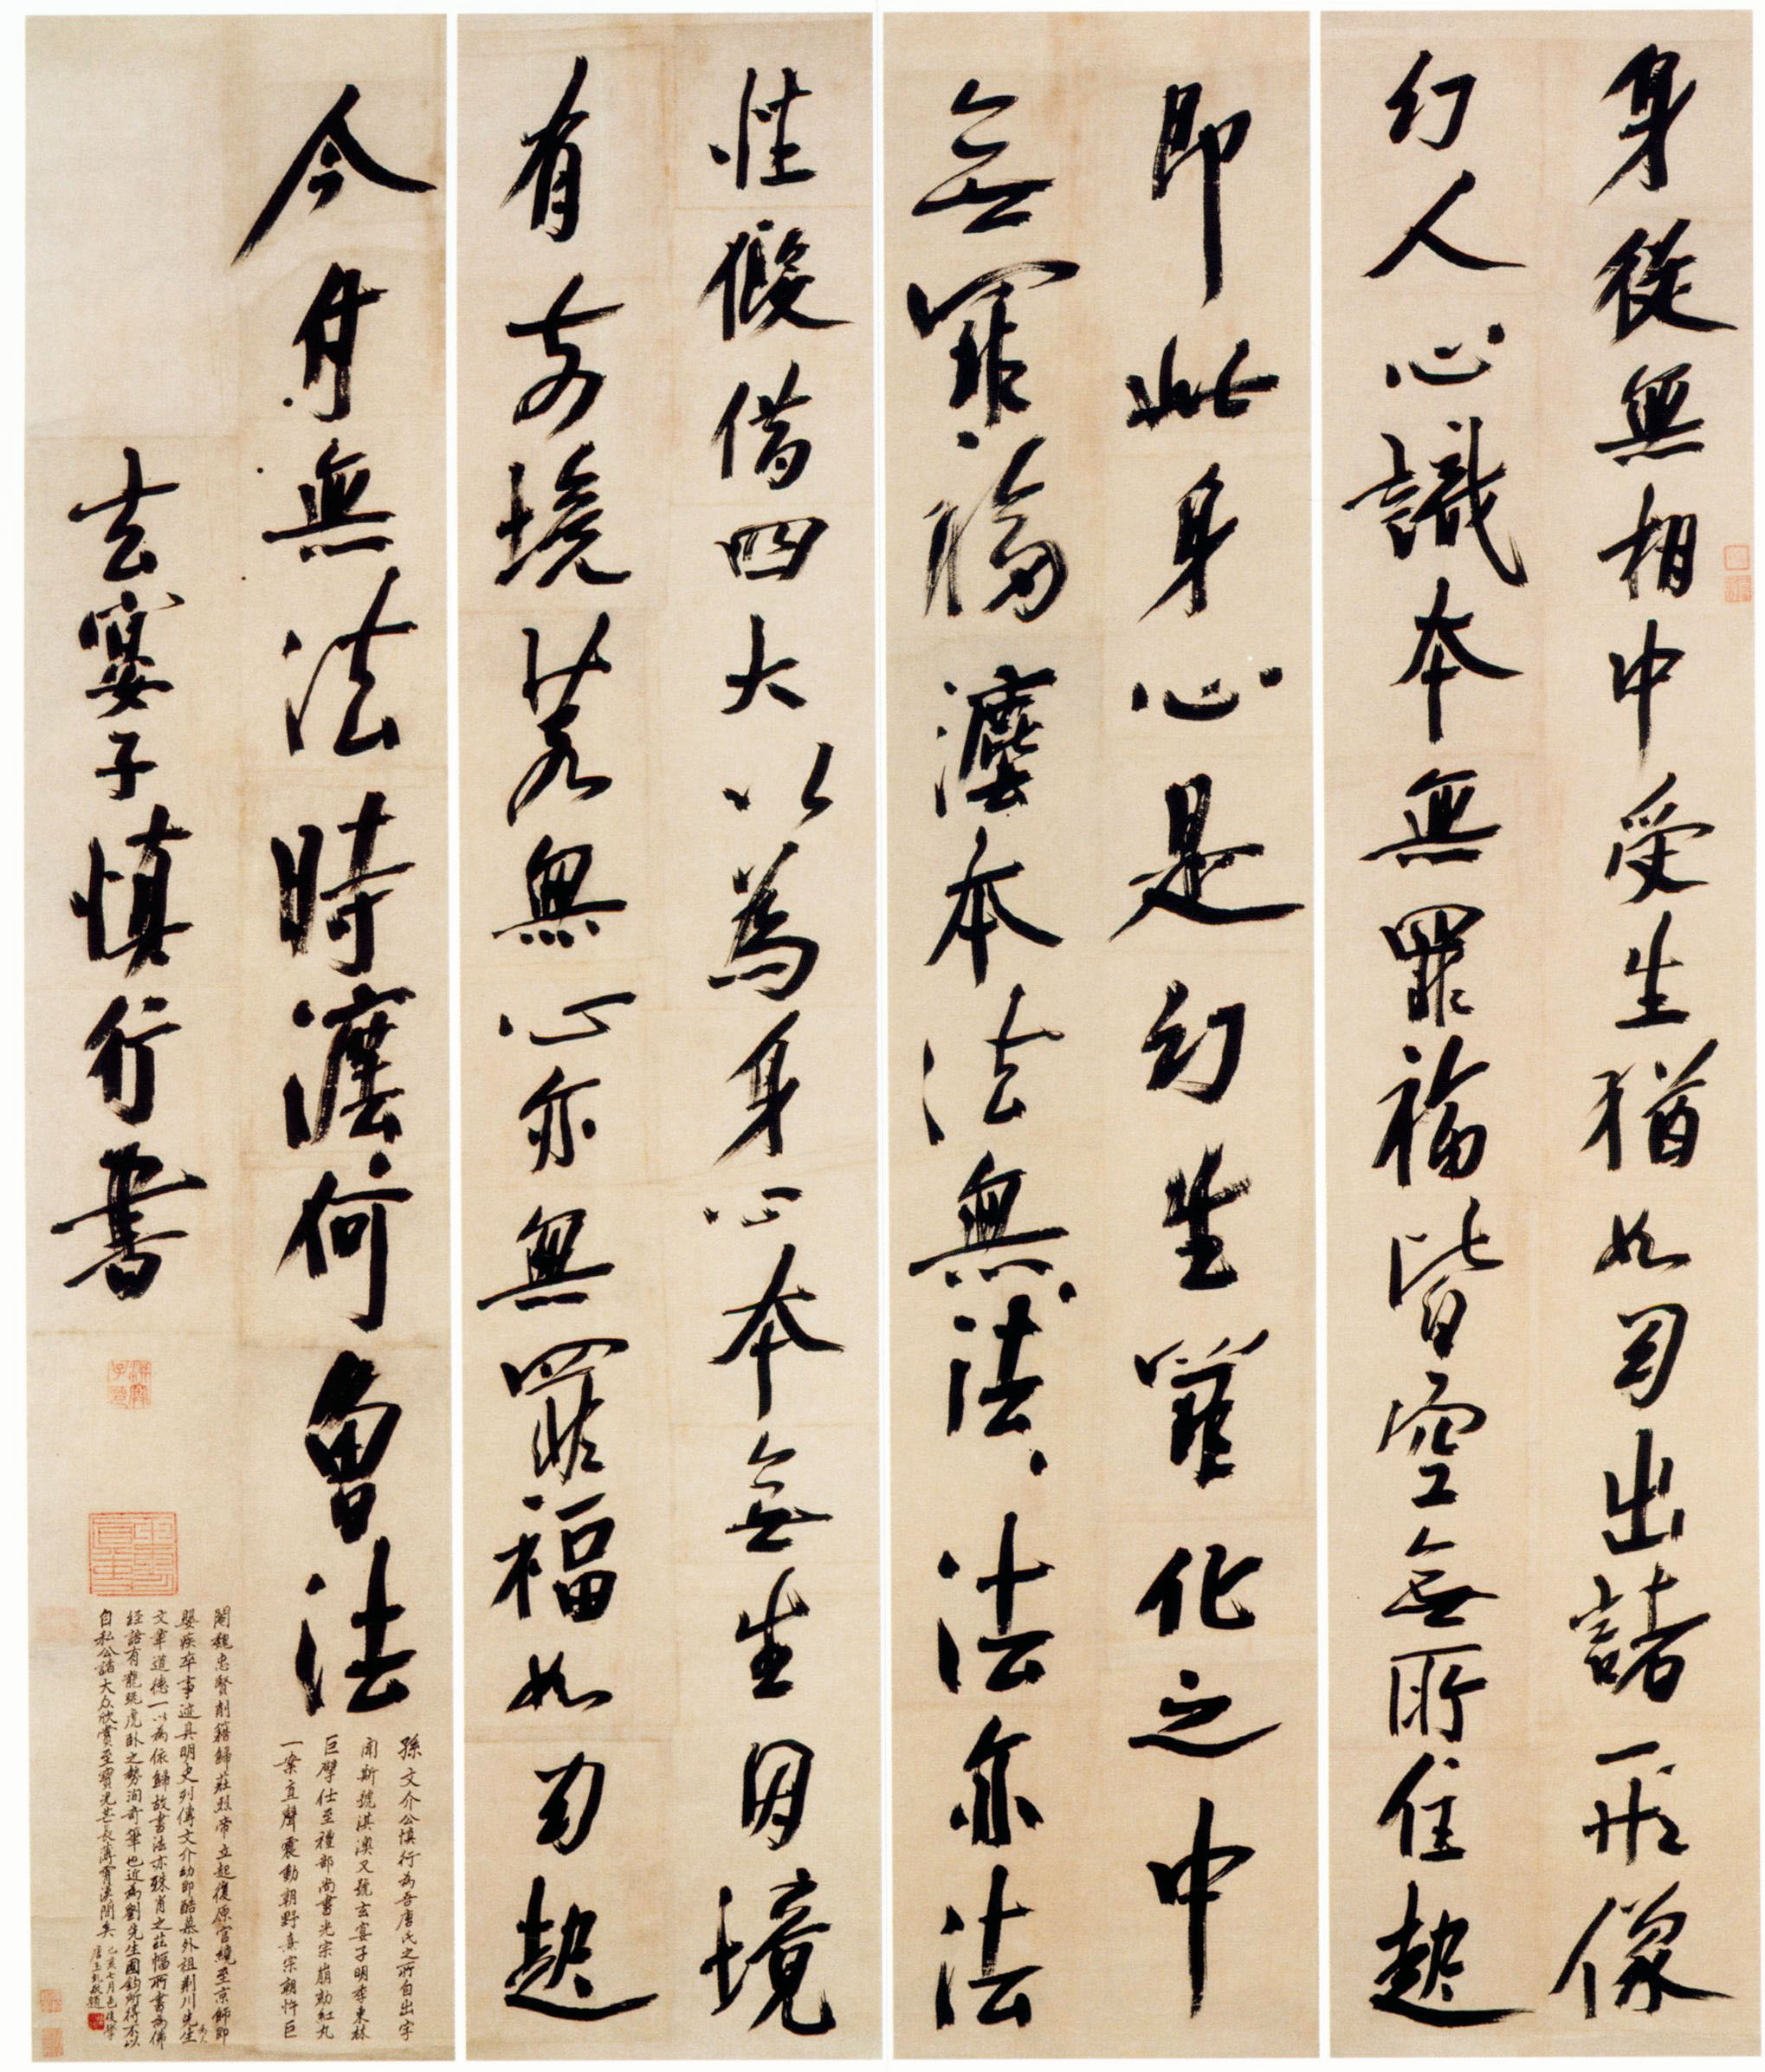 身從無相中受生猶如幻出諸形像
幻人心識本無罪福皆空無所住起
即此身心是幻生罪化之中
無罪福灋本法無法法亦法
性假借四大以為身心本無生因境
有前境若無心亦無罪福如幻起
今付無法時灋何曾法
玄宴子慎行書
孫文介公慎行為吾唐氏之所自出字
聞斯號淇澳又號玄宴子明季東林
巨擘仕至禮部尚書光宗崩劾紅丸
一案直聲震動朝野熹宗朝忤巨
閹魏忠賢削籍歸莊烈帝立起復原官纔至京師即
嬰疾卒事迹具明史列傳文介幼即酷慕外祖荊川先生為人
文章道德一以為依歸故書法亦殊肖之茲幅所書為佛
經語有龍跳虎臥之勢洵奇筆也近為劉先生國鈞所得不以
自私公諸大众欣賞至寶光芒長薄霄漢間矣 乙亥七月邑後學
唐玉虬敬題